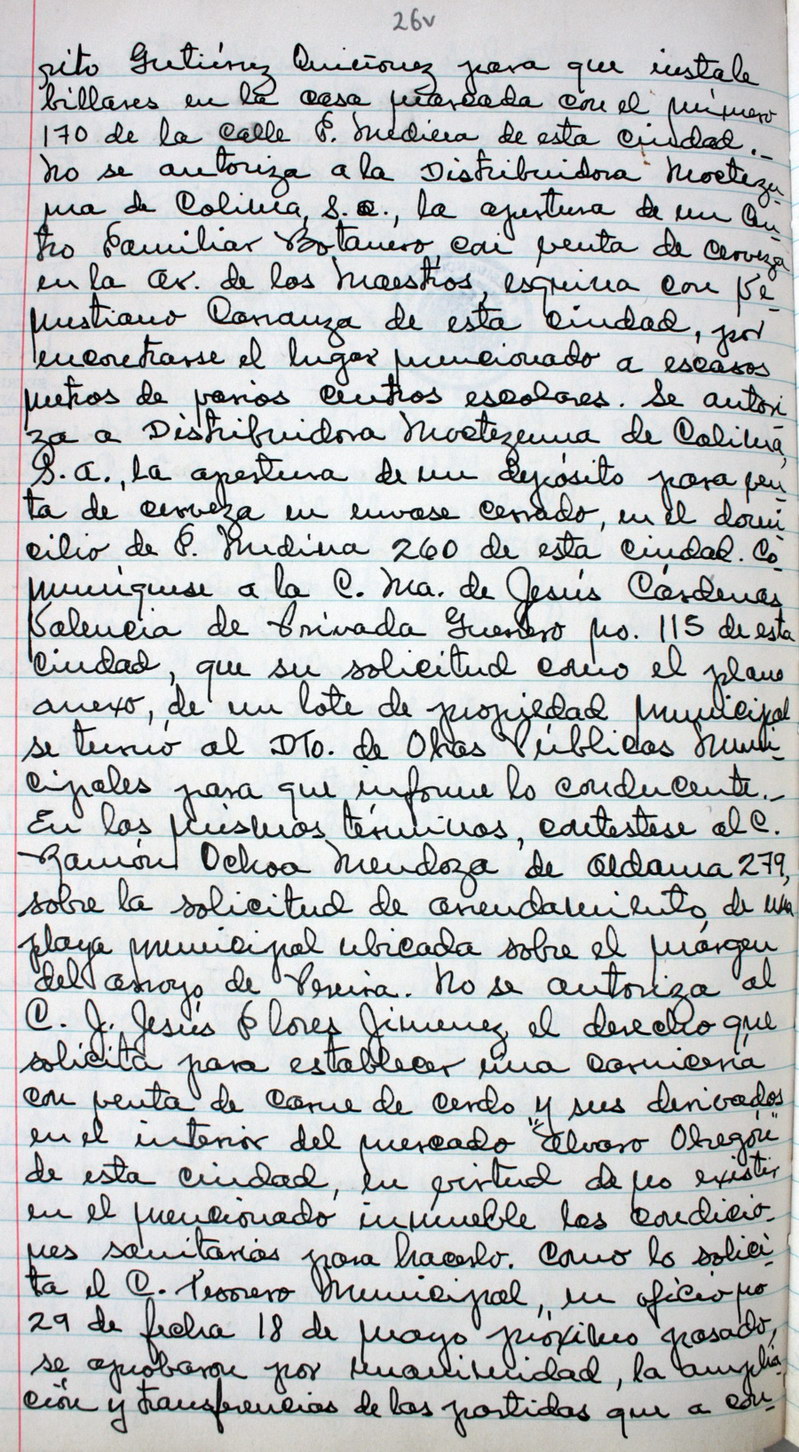 26v
rito Gutiérrez Quiñonez para que instale
billares en la casa marcada con el número
170 de la calle F. Medina de esta ciudad.-
No se autoriza a la Distribuidora Moctezu
ma de Colima, S.A., la apertura de un Cen
tro Familiar Botanero, con venta de cerveza
en la Av. de los Maestros, esquina con Ve
nustiano Carranza de esta ciudad, por
encontrarse el lugar mencionado a escasos
metros de varios centros escolares. Se autori
za a Distribuidora Moctezuma de Colima,
S.A., la apertura de un depósito para ven
ta de cerveza en envase cerrado, en el domi
cilio de F. Medina 260 de esta ciudad. Co
muníquese a la C. Ma. de Jesús Cárdenas
Valencia de Privada Guerrero no. 115 de esta
ciudad, que su solicitud como el plano
anexo, de un lote de propiedad municipal
se turnó al Dto. de Obras Públicas Muni-
cipales para que informe lo conducente.-
En los mismos términos, contéstese al C.
Ramón Ochoa Mendoza de Aldama 279,
sobre la solicitud de arrendamiento de una
playa municipal ubicada sobre el márgen
del arroyo de Pereira. No se autoriza al
C. J. Jesús Flores Jimenez el derecho que
solicita para establecer una carnicería
con venta de carne de cerdo y sus derivados
en el interior del mercado "Alvaro Obregón"
de esta ciudad, en virtud de no existir
en el mencionado inmueble las condicio-
nes sanitarias para hacerlo. Como lo solici-
ta el C. Tesorero Municipal, en oficio no
29 de fecha 18 de mayo próximo pasado,
se aprobaron por unanimidad, la amplia-
ción y transferencias de las partidas que a con-